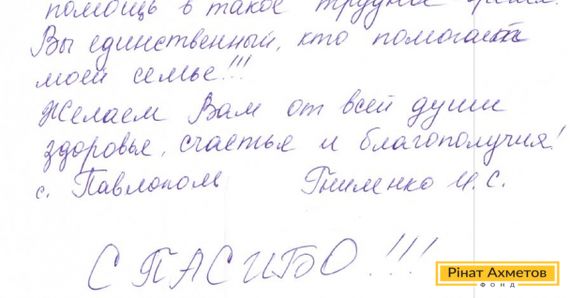 помощь в такое трудное время.
Вы единственный, кто помогает
моей семье!!!
Желаем Вам от всей души
здоровье, счастье и благополучия!
с. Павлополь Гниненко И. С.
СПАСИБО!!!
Рінат Ахметов
ФОНД